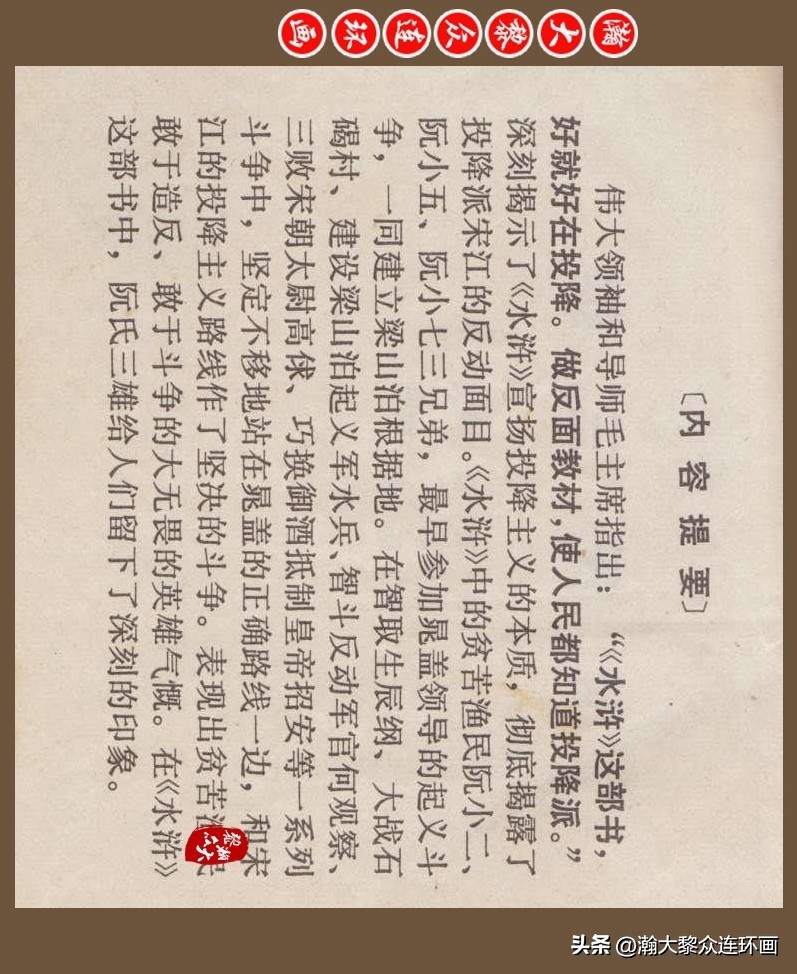 瀚大黎众连环画
〔内容提要〕
伟大领袖和导师毛主席指出：“《水浒》这部书，
好就好在投降。做反面教材，使人民都知道投降派。”
深刻揭示了《水浒》宣扬投降主义的本质，彻底揭露了
投降派宋江的反动面目。《水浒》中的贫苦渔民阮小二、
阮小五、阮小七三兄弟，最早参加晁盖领导的起义斗
争，一同建立梁山泊根据地。在智取生辰纲、大战石
碣村、建设梁山泊起义军水兵、智斗反动军官何观察、
三败宋朝太尉高俅、巧换御酒抵制皇帝招安等一系列
斗争中，坚定不移地站在晁盖的正确路线一边，和宋
江的投降主义路线作了坚决的斗争。表现出贫苦民
敢于造反、敢于斗争的大无畏的英雄气慨。在《水浒》
这部书中，阮氏三雄给人们留下了深刻的印象。
头条 @瀚大黎众连环画